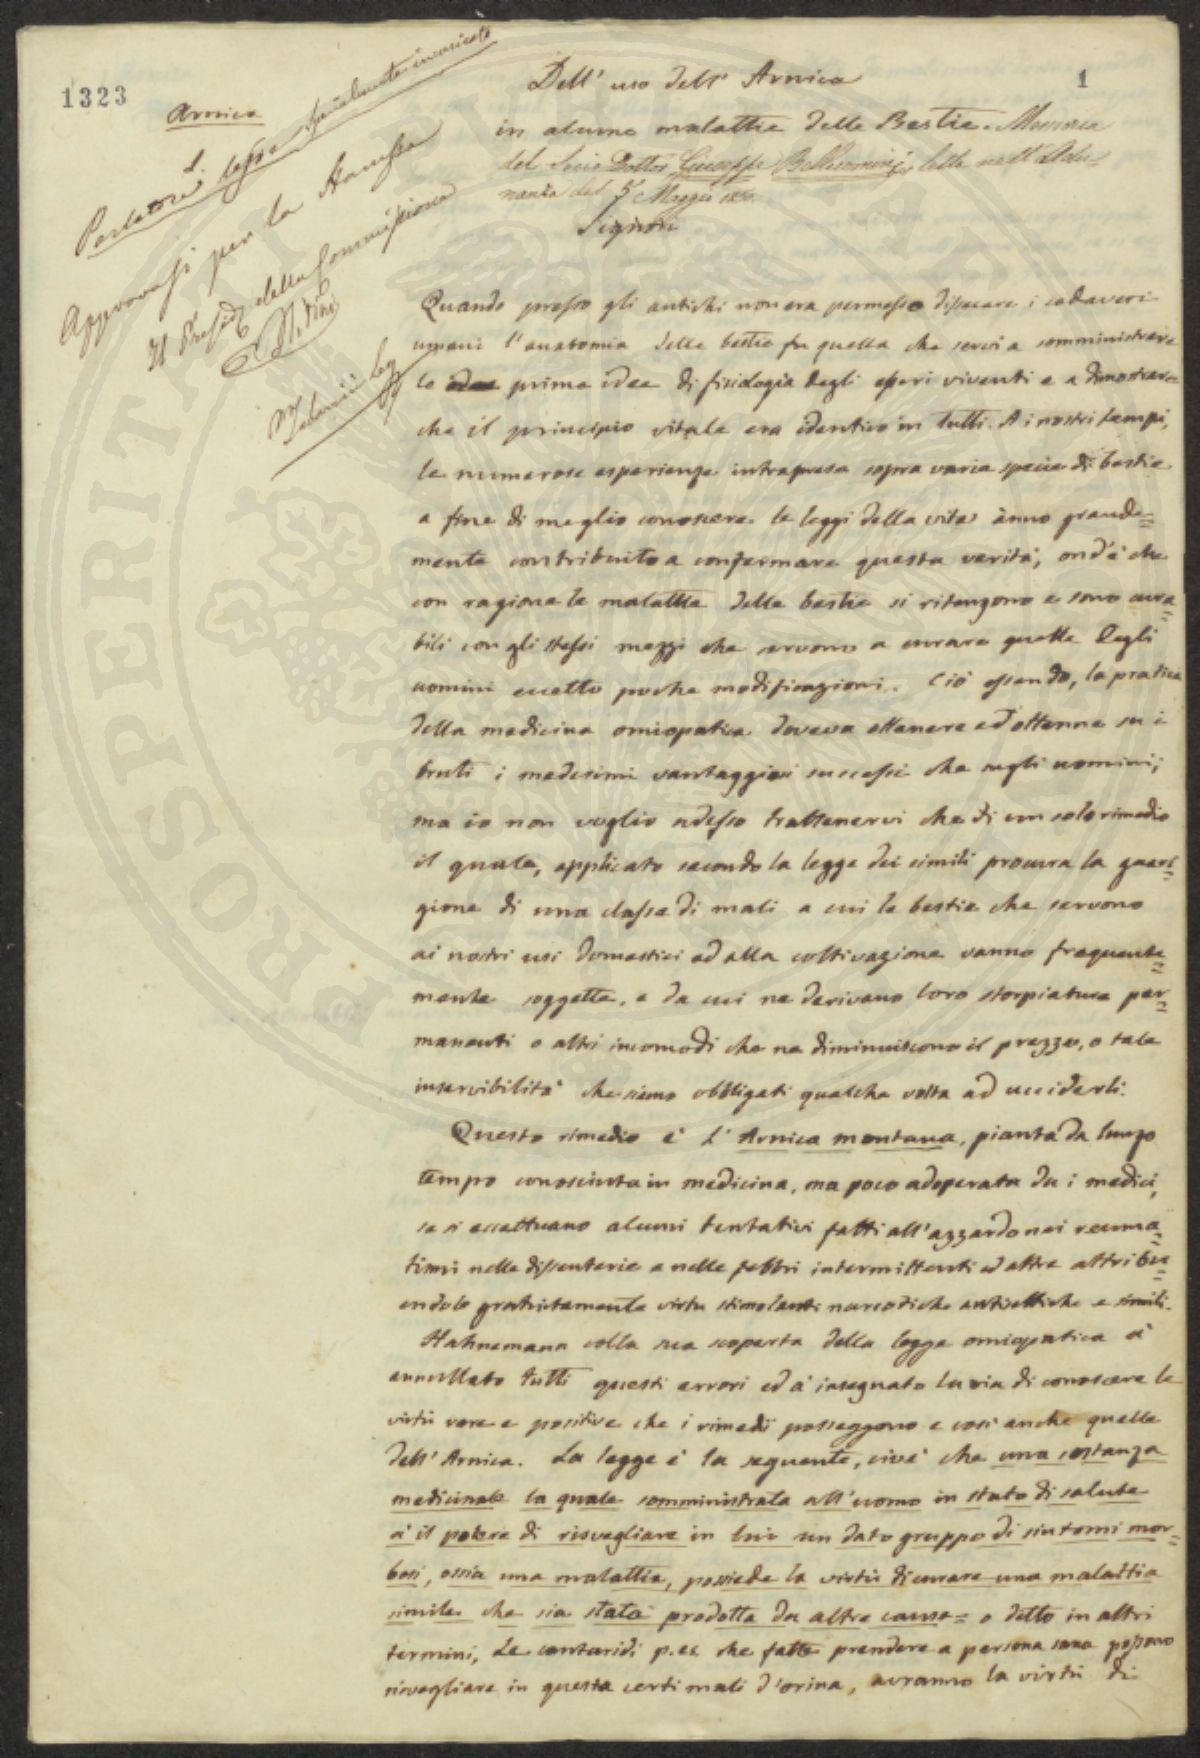 1323
1
Arnica
Parlatore. lesse
Approvasi per la Stampa
Il Presid. della Commissione
Dell' uso dell' Arnica
in alcune malattie delle Bestie. Memoria
del Socio Dottor Giuseppe Bellomini, letta nell' Adu-
nanza del 5 Maggio
Signori
Quando presso gli antichi non era permesso dissecare i cadaveri
umani l'anatomia delle bestie fu quella che servì a somministrare
le prime idee di fisiologia degli esseri viventi e a dimostrare
che il principio vitale era identico in tutti. Ai nostri tempi,
le numerose esperienze intraprese sopra varie specie di bestie
a fine di meglio conoscere le leggi della vita ànno grande=
mente contribuito a confermare questa verità, ond'è che
con ragione le malattie delle bestie si ritengono e sono cura=
bili con gli stessi mezzi che servono a curare quelle degli
uomini eccetto poche modificazioni. Ciò essendo, la pratica
della medicina omiopatica doveva ottenere ed ottenne su i
bruti i medesimi vantaggiosi successi che sugli uomini;
ma io non voglio adesso trattenervi che di un solo rimedio
il quale, applicato secondo la legge dei simili procura la guari=
gione di una classe di mali a cui le bestie che servono
ai nostri usi domestici ed alla coltivazione vanno frequente=
mente soggette, e da cui ne derivano loro storpiature per=
manenti o altri incomodi che ne diminuiscono il prezzo, o tale
inservibilità che siamo obbligati qualche volta ad ucciderli.
Questo rimedio è l'Arnica montana, pianta da lungo
tempo conosciuta in medicina, ma poco adoperata da i medici,
se si eccettuano alcuni tentativi fatti all'azzardo nei reuma=
tismi nelle dissenterie e nelle febbri intermittenti ed altre attribu=
endole gratuitamente virtù stimolanti narcotiche antisettiche e simili.
Hahnemann colla sua scoperta della legge omiopatica à
annullato tutti questi errori ed à insegnato la via di conoscere le
virtù vere e positive che i rimedi posseggono e così anche quelle
dell'Arnica. La legge è la seguente, cioè che una sostanza
medicinale la quale somministrata all'uomo in stato di salute
à il potere di risvegliare in lui un dato gruppo di sintomi mor=
bosi, ossia una malattia, possiede la virtù di curare una malattia
simile che sia stata prodotta da altre cause= o detto in altri
termini, Le cantaridi p.es. che fatte prendere a persona sana possono
risvegliare in questa certi mali d'orina, avranno la virtù di